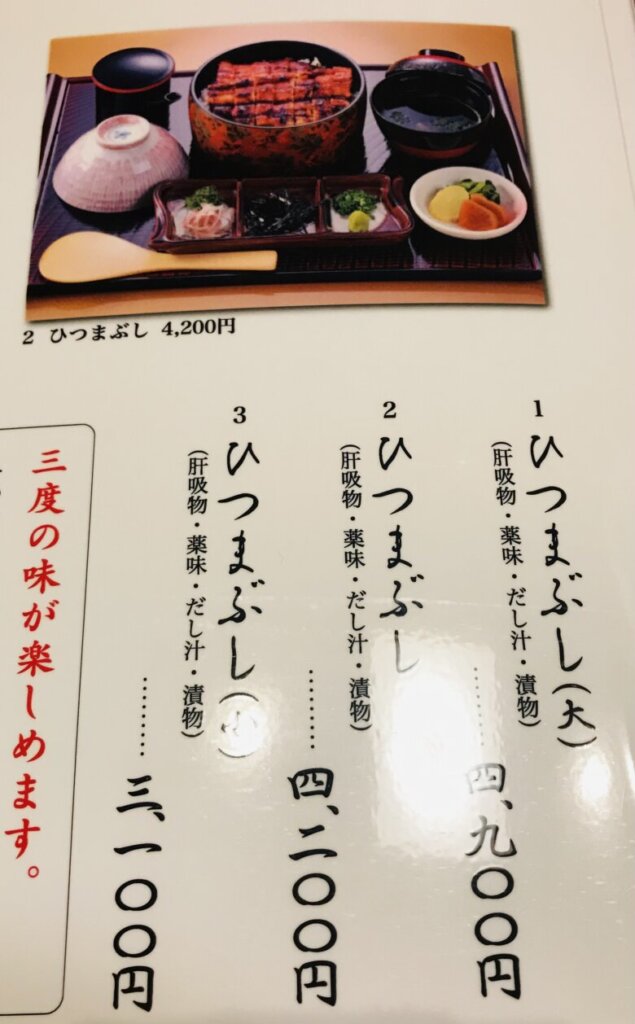 2 ひつまぶし 4,200円
1 ひつまぶし(大)
(肝吸物・薬味・だし汁・漬物)
………四、九〇〇円
2 ひつまぶし
(肝吸物・薬味・だし汁・漬物)
………四、二〇〇円
3 ひつまぶし(小)
(肝吸物・薬味・だし汁・漬物)
………三、一〇〇円
三度の味が楽しめます。